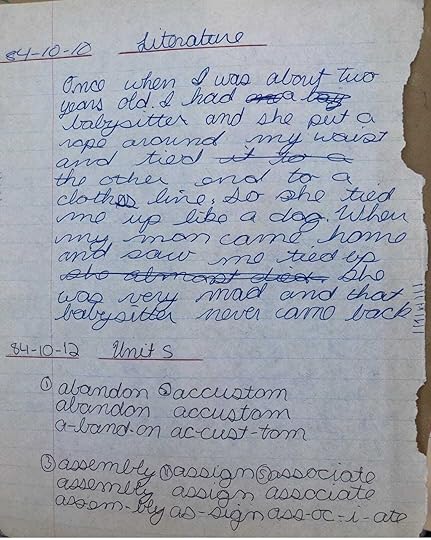 84-10-10 Literature
Once when I was about two
years old I had a
babysitter and she put a
rope around my waist
and tied it to a
the other end to a
clothes line. So she tied
me up like a dog. When
my mom came home
and saw me tied up
she almost died. She
was very mad and that
babysitter never came back
84-10-12 Unit 5
① abandon ② accustom
abandon accustom
a-band-on ac-cust-tom
③ assembly ④ assign ⑤ associate
assembly assign associate
assem-bly as-sign ass-oc-i-ate